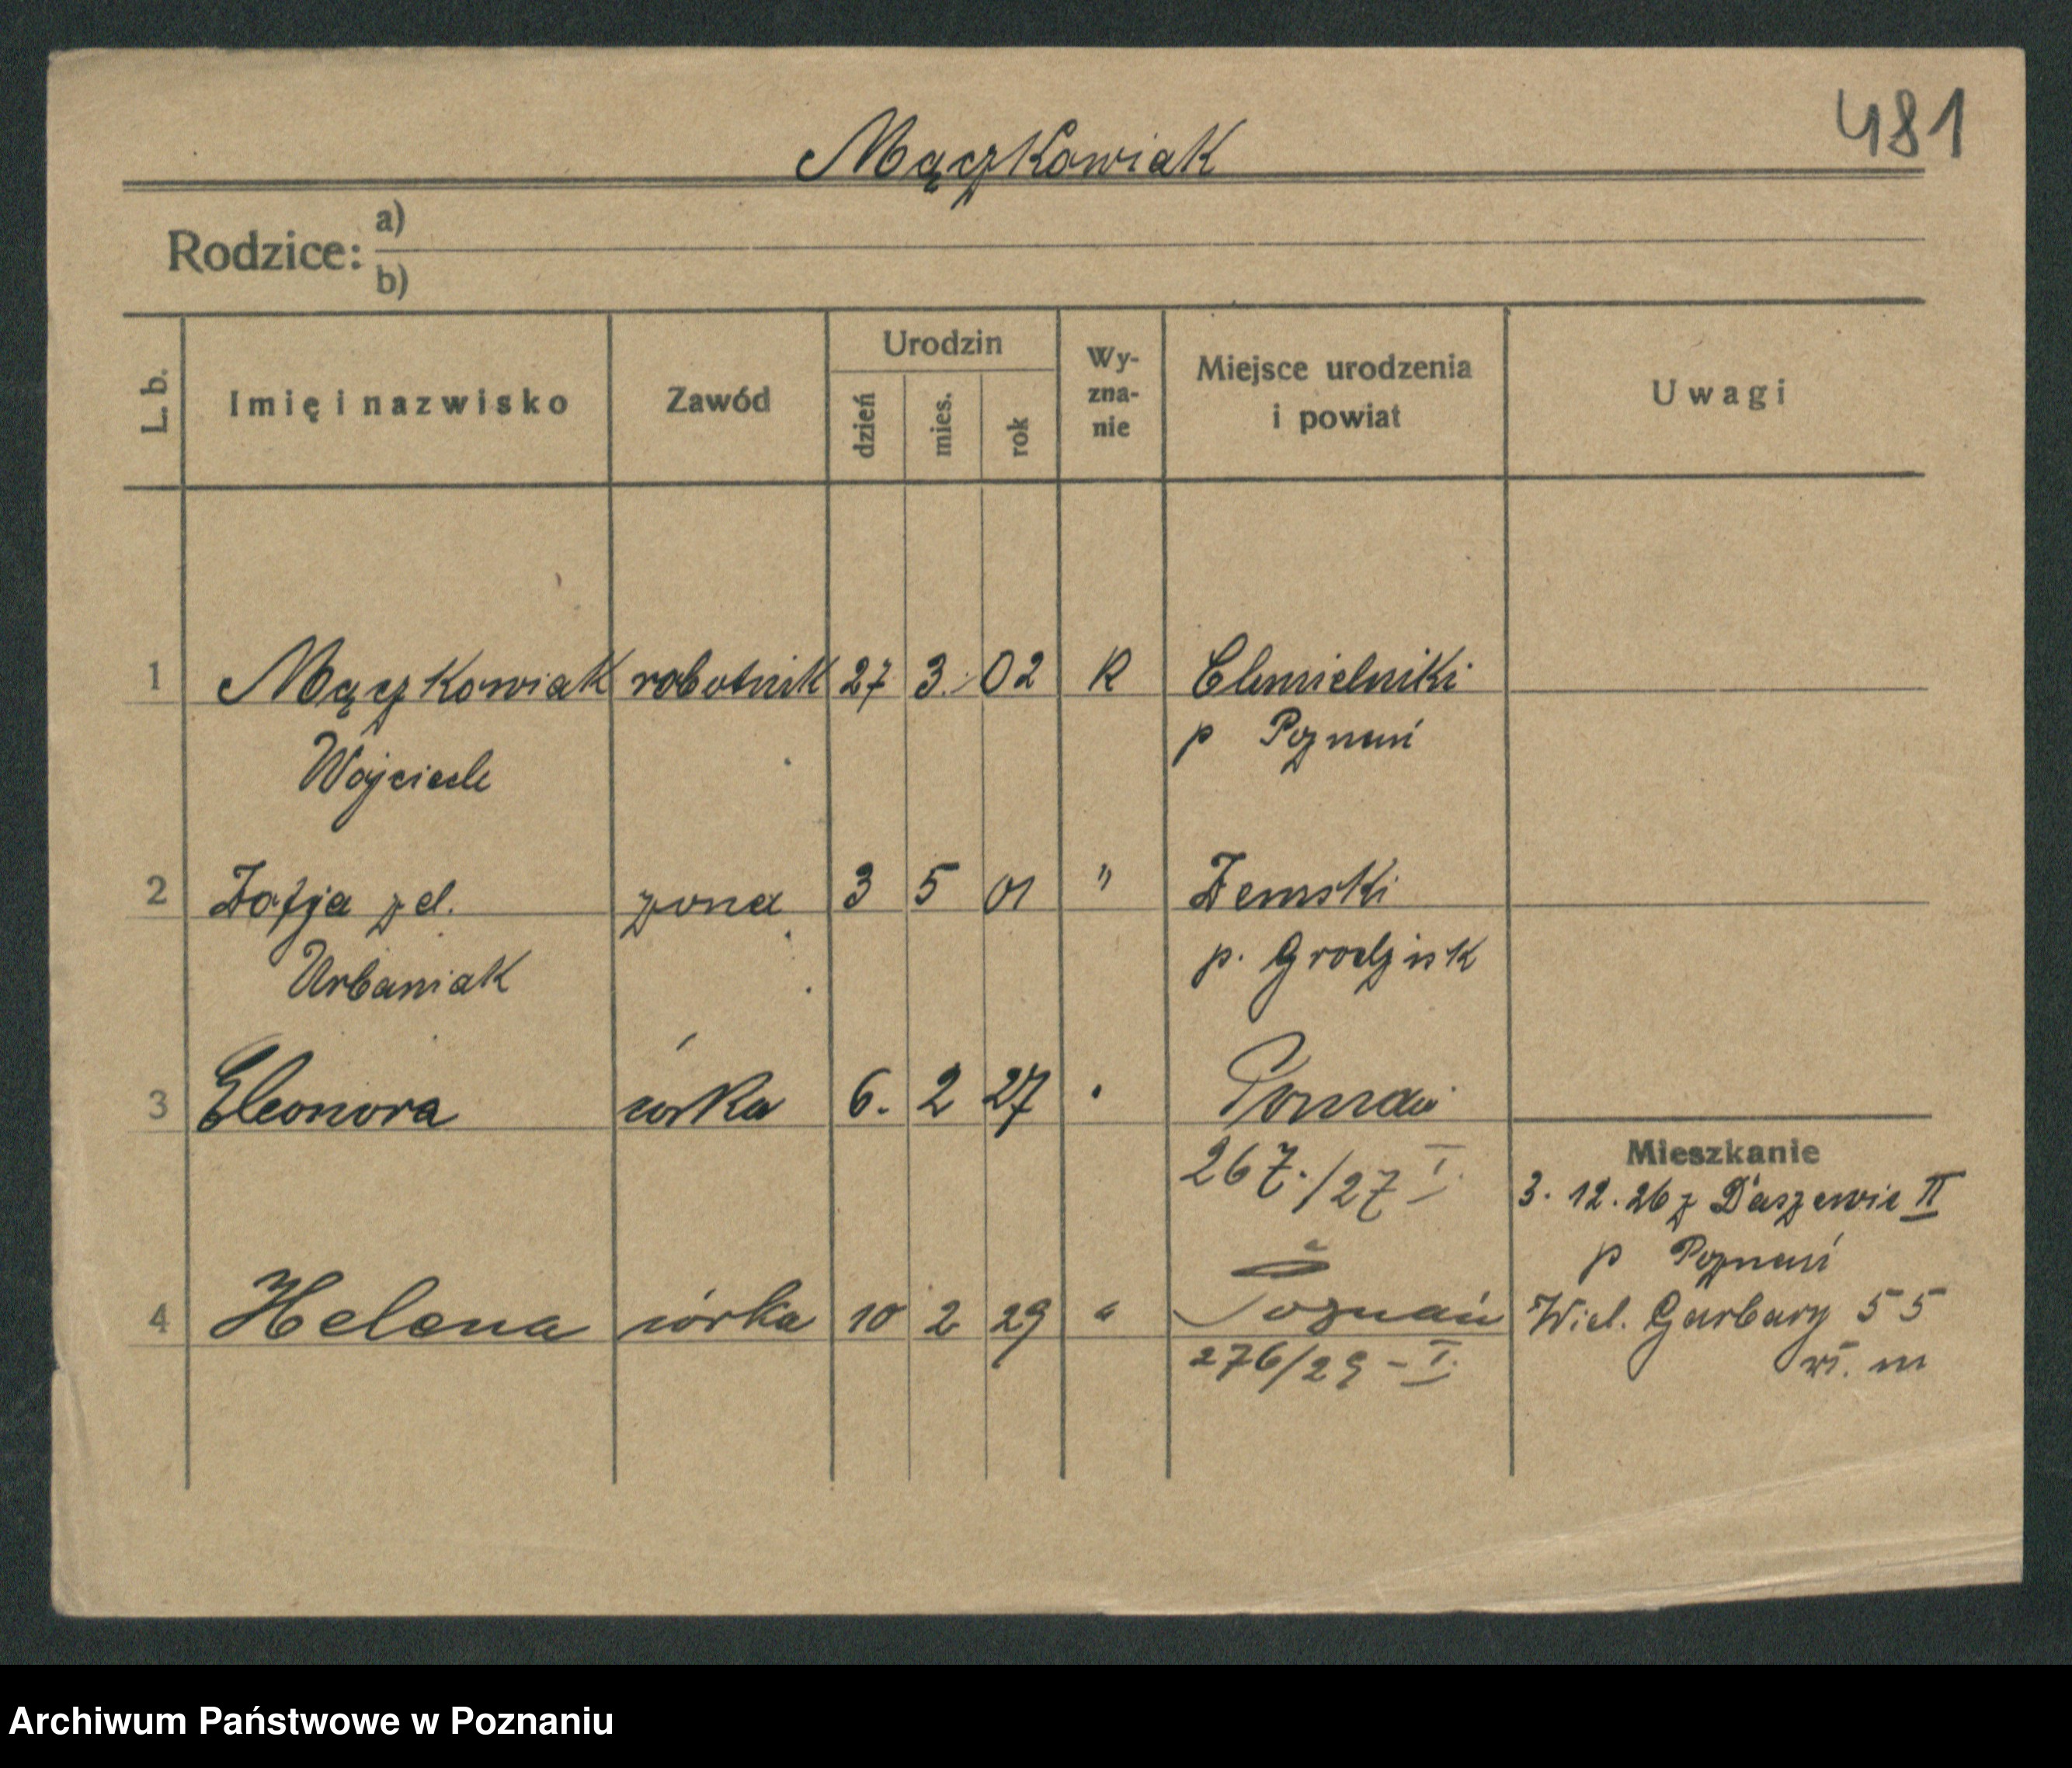 481
Mączkowiak
Rodzice: a)
b)
L. b. Imię i nazwisko Zawód Urodzin dzień mies. rok Wy-zna-nie Miejsce urodzenia i powiat Uwagi
1 Mączkowiak robotnik 27 3. 02 R Chmielniki
Wojciech p Poznań
2 Zofja zd. żona 3 5 01 " Zemski
Urbaniak p. Grodzisk
3 Eleonora córka 6. 2 27 " Poznań
267./27 I.
4 Helena córka 10 2 29 " Poznań
276/29 - I.
Mieszkanie
3. 12. 26 z Daszewic II
p Poznań
Wiel. Garbary 55
m
Archiwum Państwowe w Poznaniu